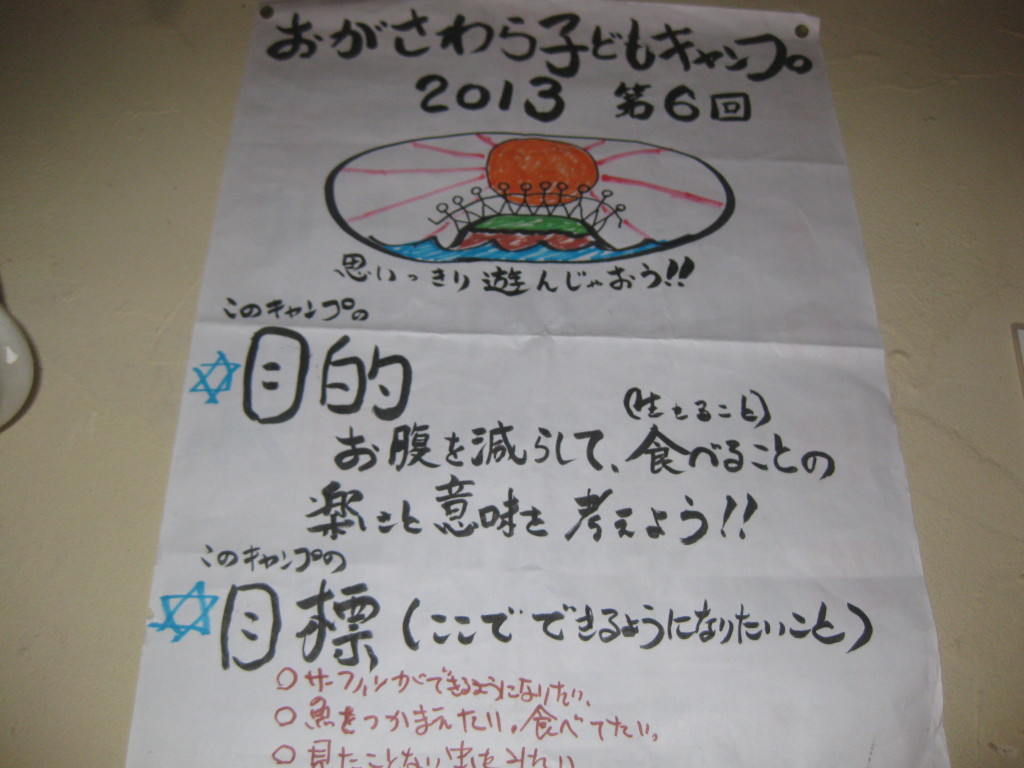 おがさわら子どもキャンプ
2013 第6回
思いっきり遊んじゃおう!!
このキャンプの
目的
(生きること)
お腹を減らして、食べることの
楽こと意味を考えよう!!
このキャンプの
目標(ここでできるようになりたいこと)
○サーフィンができるようになりたい、
○魚をつかまえたい。食べてたい。
○見たことない虫をみたい